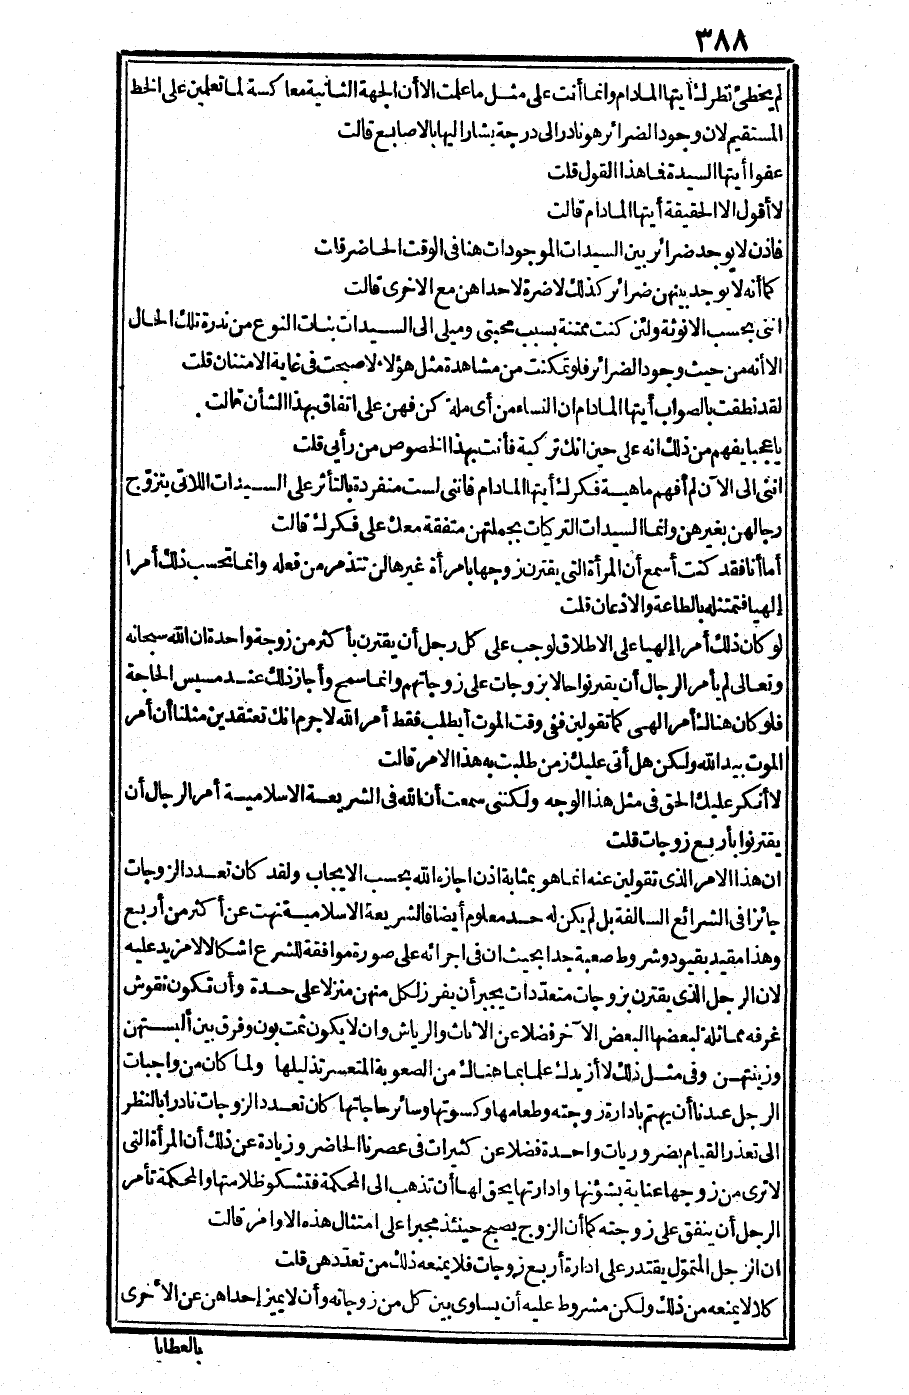 ٣٨٨
لم يخطئ نظرك أيتها المادام وانما أنت على مثل ما علمت الا أن الجهة الثانية معاكسة لما تعلمين على الخط
المستقيم لان وجود الضرائر هو نادر الى درجة يشار اليها بالاصابع قالت
عفوا أيتها السيدة فما هذا القول قلت
لا أقول الا الحقيقة أيتها المادام قالت
فاذن لا يوجد ضرائر بين السيدات الموجودات هنا فى الوقت الحاضر قات
كما أنه لا يوجد بينهن ضرائر كذلك لا ضرة لاحداهن مع الاخرى قالت
اننى بحسب الانوثة ولئن كنت ممتنة بسبب محبتى وميلى الى السيدات بنات النوع من ندرة تلك الحال
الا أنه من حيث وجود الضرائر فلو تمكنت من مشاهدة مثل هؤلاء لاصبحت فى غاية الامتنان قلت
لقد نطقت بالصواب أيتها المادام ان النساء من أى ملة كن فهن على اتفاق بهذا الشأن قالت
يا عجبا يفهم من ذلك انه على حين انك تركية فأنت بهذا الخصوص من رأيى قلت
اننى الى الآن لم أفهم ماهية فكرك أيتها المادام فاننى لست منفردة بالتأثر على السيدات اللاتى يتزوّج
رجالهن بغيرهن وانما السيدات التركيات بجملتهن متفقة معك على فكرك قالت
أما أنا فقد كنت أسمع أن المرأة التى يقترن زوجها بامرأة غيرها لن تتذمر من فعله وانما تحسب ذلك أمرا
إلهيا فتمتثله بالطاعة والاذعان قلت
لو كان ذلك أمرا إلهيا على الاطلاق لوجب على كل رجل أن يقترن بأكثر من زوجة واحدة ان الله سبحانه
وتعالى لم يأمر الرجال أن يقترنوا حالا بزوجات على زوجاتهم وانما سمح وأجاز ذلك عند مسيس الحاجة
فلو كان هنالك أمر الهى كما تقولين ففى وقت الموت أيطلب فقط أمر الله لاجرم انك تعتقدين مثلنا أن أمر
الموت بيد الله ولكن هل أتى عليك زمن طلبت به هذا الامر قالت
لا أنكر عليك الحق فى مثل هذا الوجه ولكننى سمعت أن الله فى الشريعة الاسلامية أمر الرجال أن
يقترنوا بأربع زوجات قلت
ان هذا الامر الذى تقولين عنه انما هو بمثابة اذن اجازه الله بحسب الايجاب ولقد كان تعدد الزوجات
جائزا فى الشرائع السالفة بل لم يكن له حد معلوم أيضا فالشريعة الاسلامية نهت عن أكثر من أربع
وهذا مقيد بقيود وشروط صعبة جدا بحيث ان فى اجرائه على صورة موافقة للشرع اشكالا لا مزيد عليه
لان الرجل الذى يقترن بزوجات متعددات يجبر أن يفرز لكل منهن منزلا على حدة وأن تكون نقوش
غرفه مماثلة لبعضها البعض الآخر فضلا عن الاثاث والرياش وان لا يكون ثمت بون وفرق بين ألبستهن
وزينتهن وفى مثل ذلك لا أزيدك علما بما هنالك من الصعوبة المتعسر تذليلها ولما كان من واجبات
الرجل عندنا أن يهتم بادارة زوجته وطعامها وكسوتها وسائر حاجاتها كان تعدد الزوجات نادرا بالنظر
الى تعذر القيام بضروريات واحدة فضلا عن كثيرات فى عصرنا الحاضر وزيادة عن ذلك أن المرأة التى
لا ترى من زوجها عناية بشؤنها وادارتها يحق لها أن تذهب الى المحكمة فتشكو ظلامتها والمحكمة تأمر
الرجل أن ينفق على زوجته كما أن الزوج يصبح حينئذ مجبرا على امتثال هذه الاوامر قالت
ان الرجل المتموّل يقتدر على ادارة أربع زوجات فلا يمنعه ذلك من تعدّدهن قلت
كلا لا يمنعه من ذلك ولكن مشروط عليه أن يساوى بين كل من زوجاته وأن لا يميز إحداهن عن الأخرى
بالعطايا